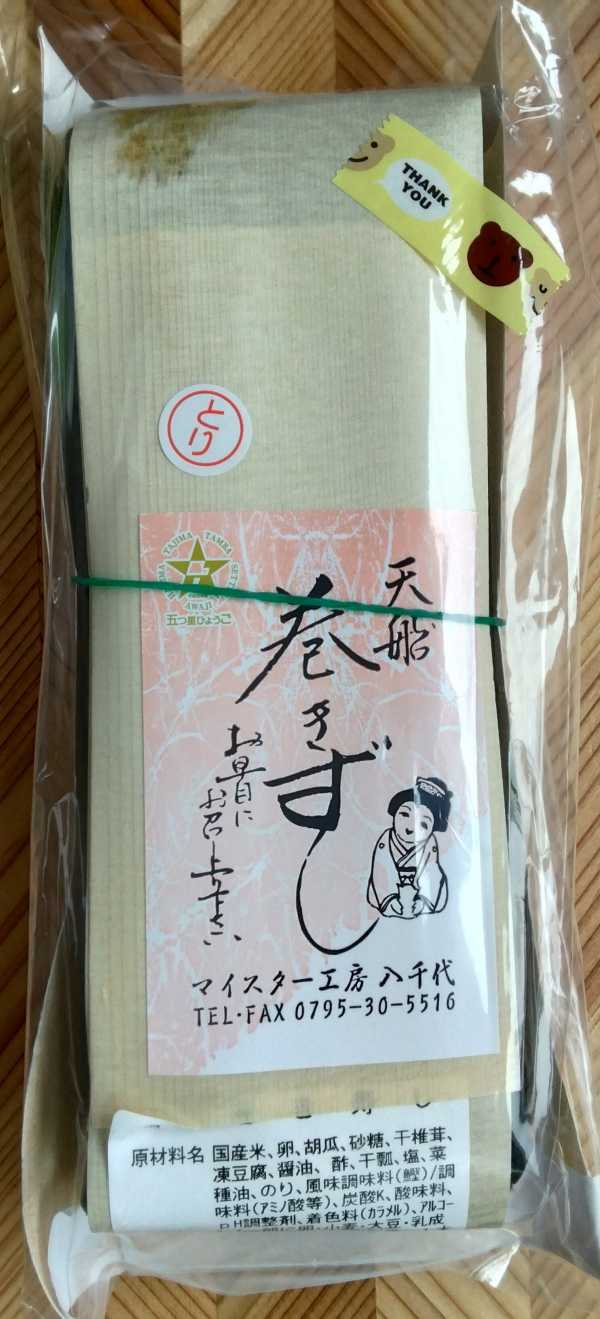 THANK
YOU
とり
TAJIMA TAMBA
AWAJI
五つ星ひょうご
天船
巻きずし
お早目に
お召し上り下さい
マイスター工房 八千代
TEL・FAX 0795-30-5516
原材料名 国産米、卵、胡瓜、砂糖、干椎茸、
凍豆腐、醤油、酢、干瓢、塩、菜
種油、のり、風味調味料(鰹)/調
味料(アミノ酸等)、炭酸K、酸味料、
PH調整剤、着色料(カラメル)、アルコー
卵・小麦・大豆・乳成